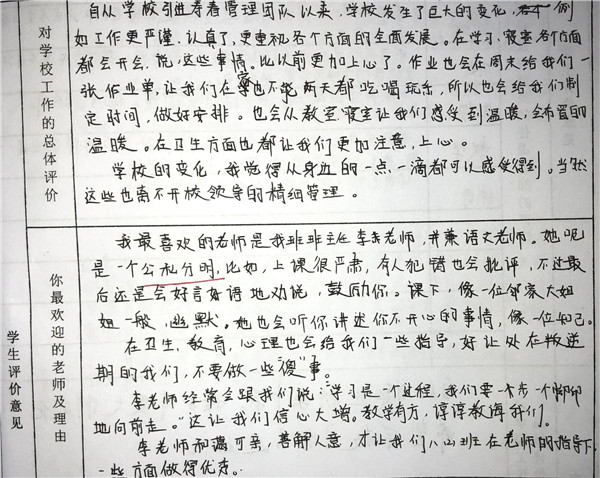 对学校工作的总体评价
自从学校引进寿春管理团队以来，学校发生了巨大的变化，例
如工作更严谨、认真了，更重视各个方面的全面发展。在学习、寝室各方面
都会开会，说这些事情。比以前更加上心了。作业也会在周末给我们一
张作业单，让我们在家也不能两天都吃喝玩乐，所以也会给我们制
定时间，做好安排。也会从教室寝室让我们感受到温暖，全布置的
温暖。在卫生方面也都让我们更加注意，上心。
学校的变化，我觉得从身边的一点一滴都可以感受得到。当然
这些也离不开校领导的精细管理。
学生评价意见
你最欢迎的老师及理由
我最喜欢的老师是我班班主任李老师，并兼语文老师。她呢
是一个公私分明，比如，上课很严肃，有人犯错也会批评，不过最
后还是会好言好语地劝说，鼓励你。课下，像一位邻家大姐
姐一般，幽默。她也会听你讲述你不开心的事情，像一位知己。
在卫生、教育、心理也会给我们一些指导，好让处在叛逆
期的我们，不要做一些"傻"事。
李老师经常会跟我们说："学习是一个过程，我们要一步一个脚印
地向前走。"这让我们信心大增。教学有方，谆谆教诲我们。
李老师和蔼可亲，善解人意，才让我们八(4)班在老师的指导下
一些方面做得优秀。